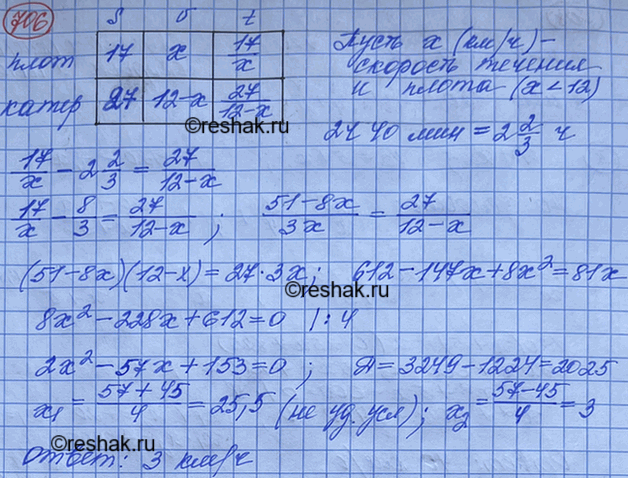 706
S v t
плот 17 x 17/x
катер 27 12-x 27/(12-x)
Пусть x (км/ч) -
скорость течения
и плота (x < 12)
2ч 40 мин = 2 2/3 ч
©reshak.ru
17/x - 2 2/3 = 27/(12-x)
17/x - 8/3 = 27/(12-x) ; (51-8x)/3x = 27/(12-x)
(51-8x)(12-x) = 27·3x; 612-147x+8x² = 81x
©reshak.ru
8x² - 228x + 612 = 0 /: 4
2x² - 57x + 153 = 0 ; Д = 3249 - 1224 = 2025
x₁ = (57+45)/4 = 25,5 (не уд. усл); x₂ = (57-45)/4 = 3
©reshak.ru
Ответ: 3 км/ч